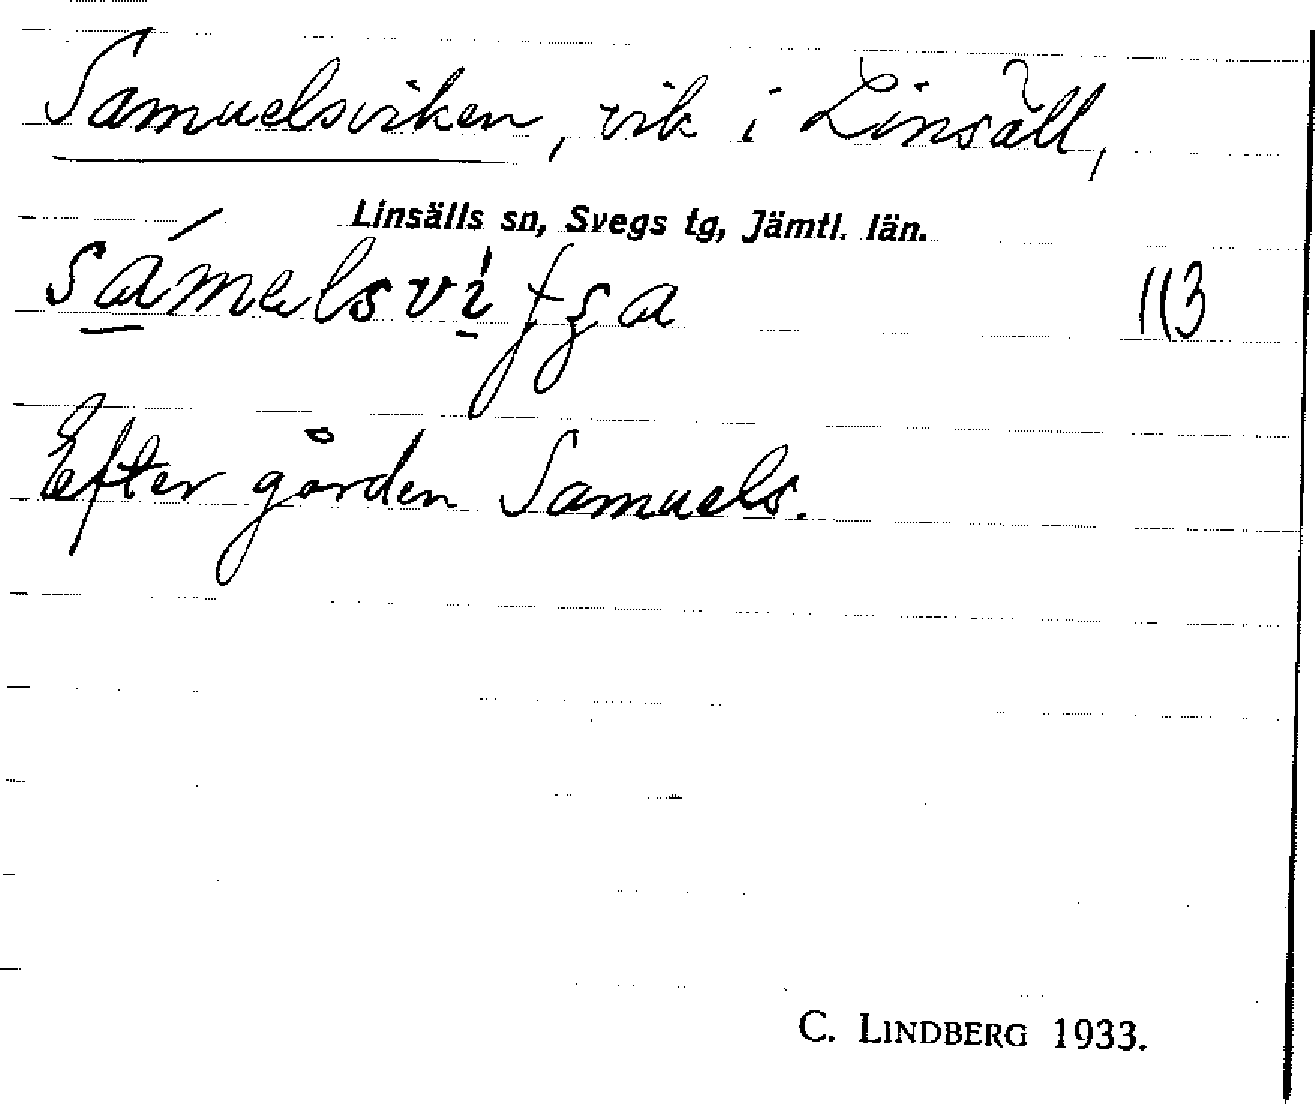 Samuelsviken, vik i Linsäll,
Linsälls sn, Svegs tg, Jämtl. län.
113
Efter gården Samuels.
C. LINDBERG 1933.